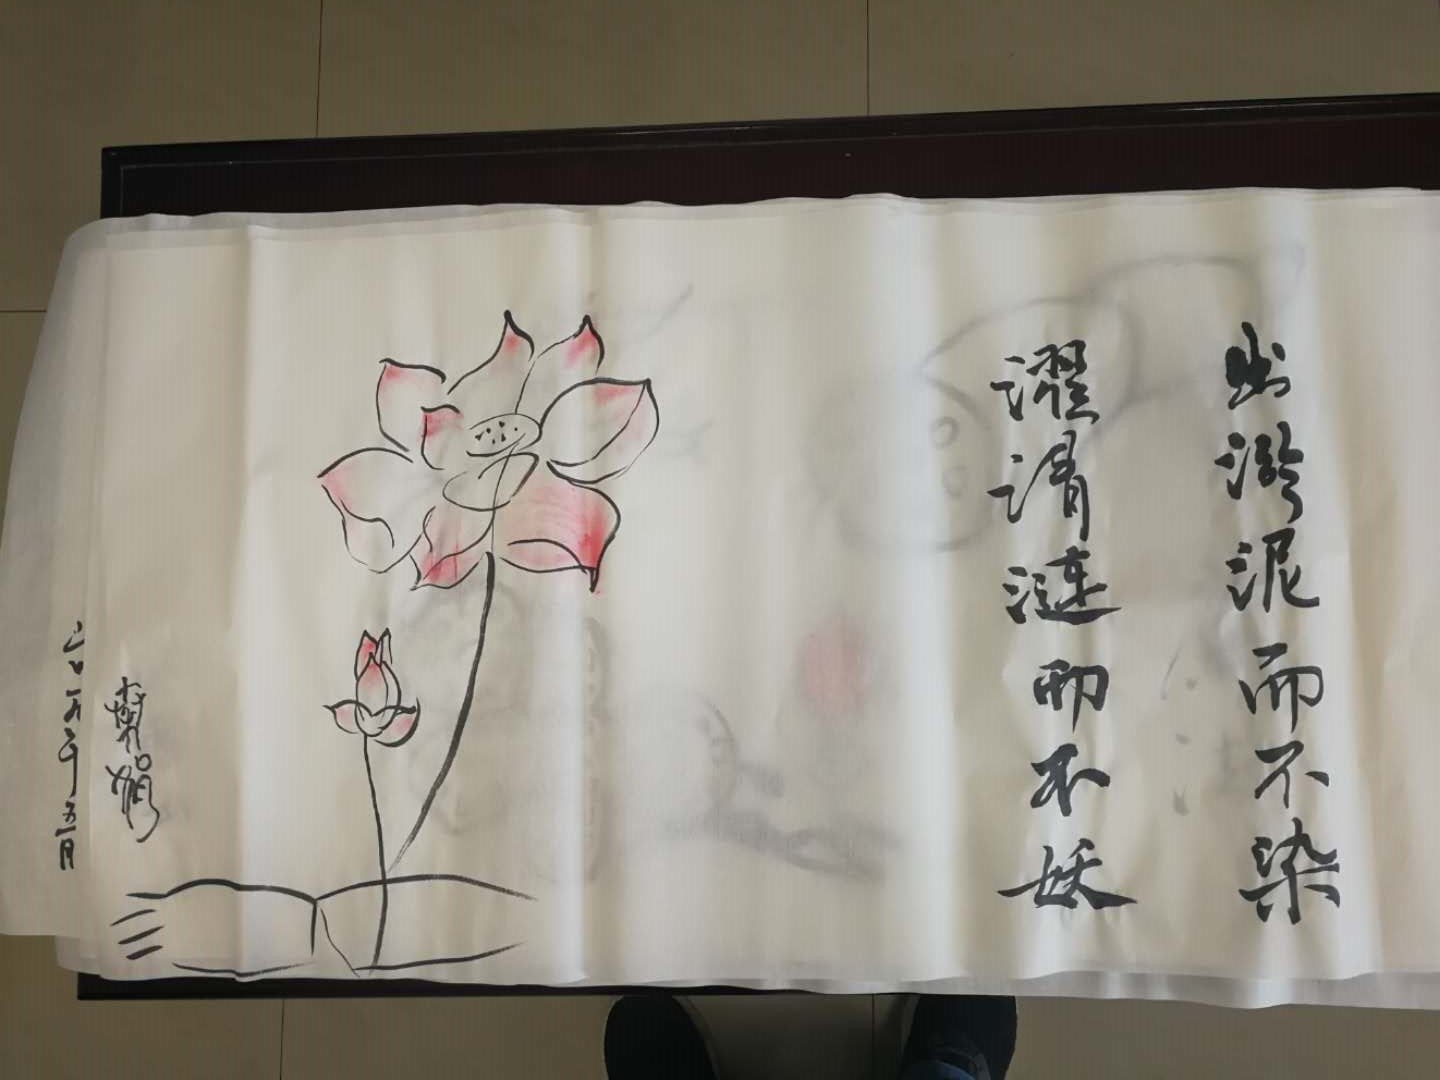 出淤泥而不染
濯清漣而不妖
二〇一九年五月